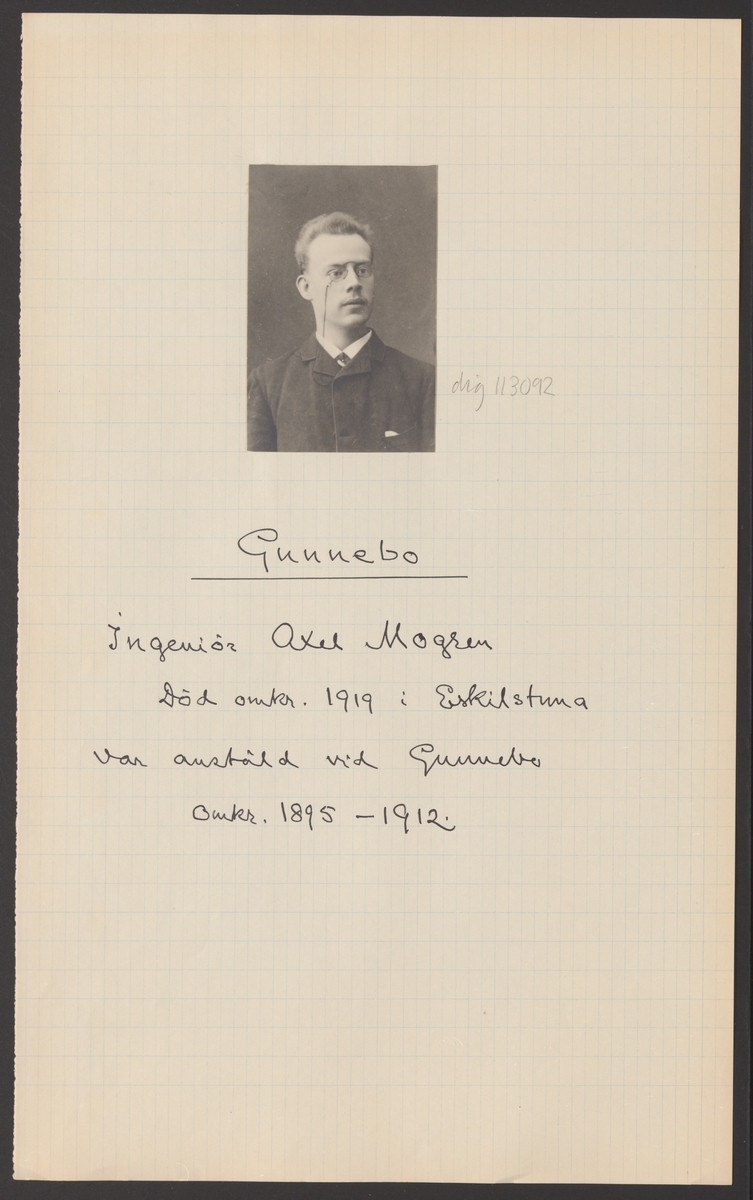 dig 113092
Gunnebo
Ingeniör Axel Mogren
Död omkr. 1919 i Eskilstuna
var anstäld vid Gunnebo
omkr. 1895 – 1912.